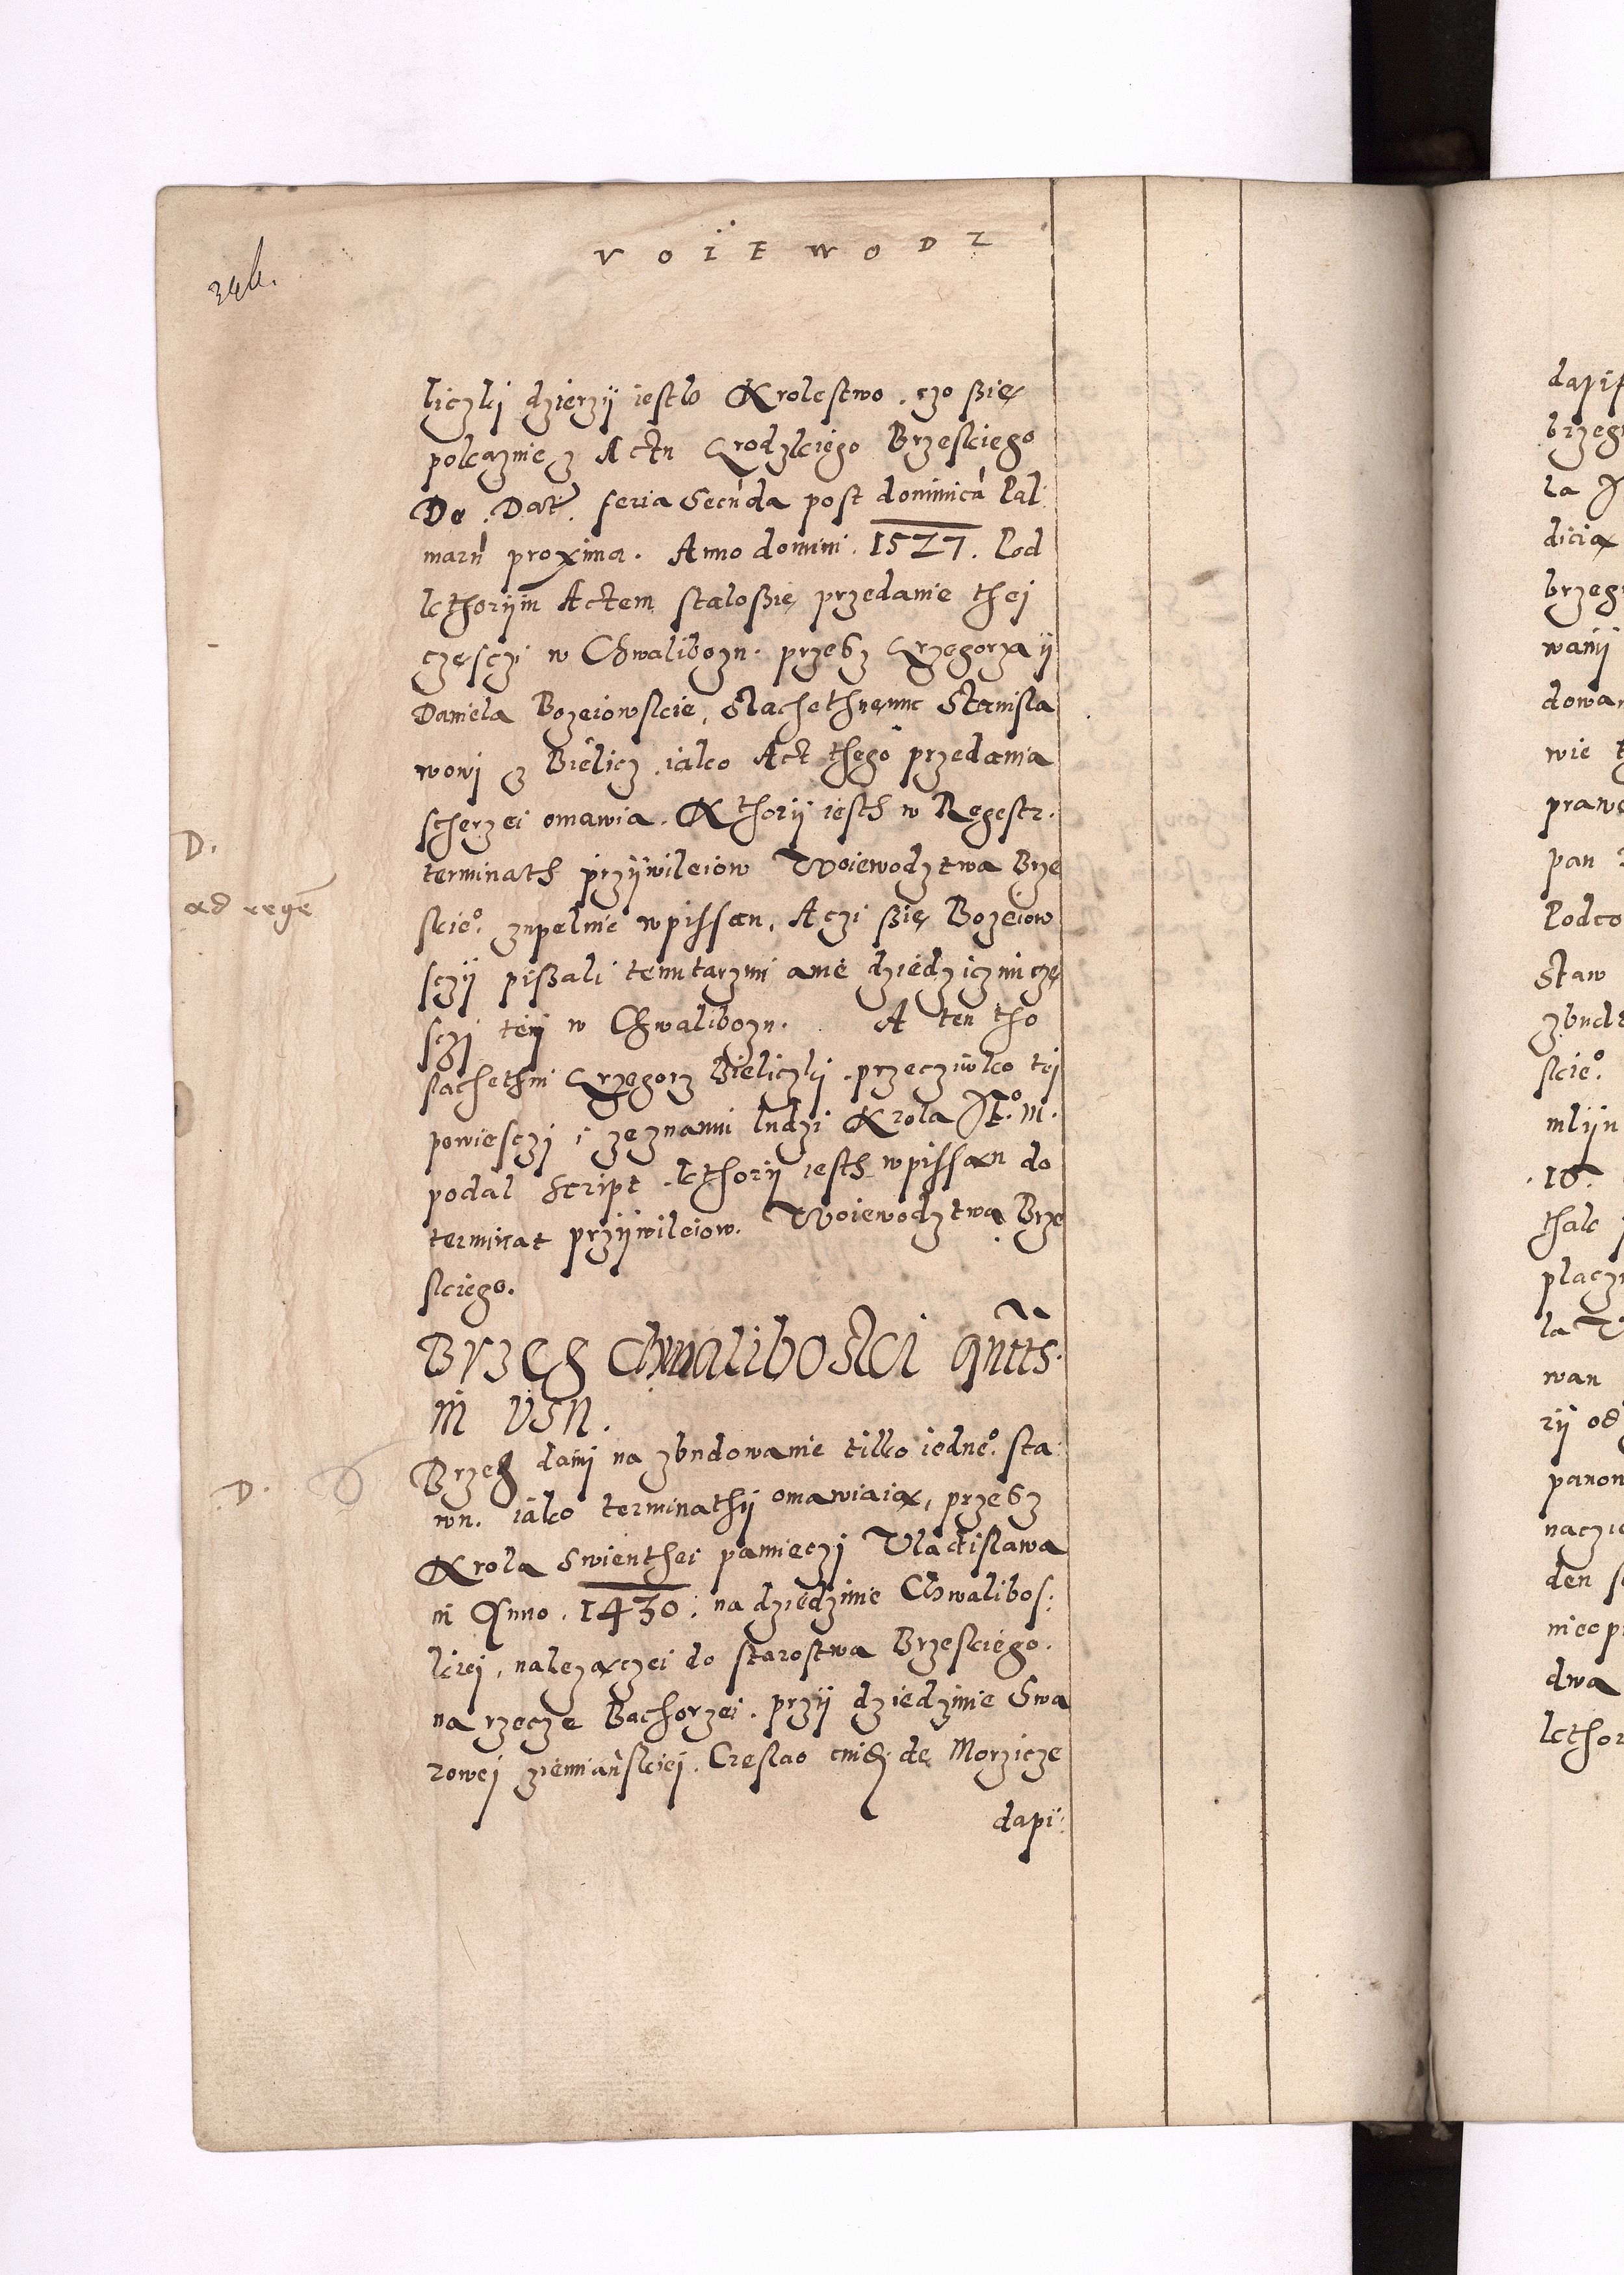 VOIEWODZ
liczkj dzierzÿ iestło Krolestwo. czo sßię
pokaznie z Actu Grodzkiego Brzeskiego
De. Dat. feria Secunda post dominicā Pal:
marū proxima. Anno domini. 1527. Pod
kthorÿm Actem stalosßię przedanie thej
częsczi w Chwalibozu. przesz Grzegorza ÿ
Daniela Bozeiowskie, Slachethnemu Stanisla
wowj z Bielicz. iako Act thego przedania
scherzei omawia. Kthorÿ iesth w Regestr.
terminath przÿwileiow Woiewodztwa Brze
skieº. zupelnie wpissan. A czi się Bozeiow
sczÿ pißali tenutarzmi a nie dziedziczmi czę
sczj tej w Chwalibozu. A ten tho
slachethni Grzegorz Bieliczkj. przecziwko tej
powiesczj i zeznaniu ludzi Krola Jeº. M.
podal script. kthorÿ iesth wpissan do
terminat przÿwileiow. Woiewodztwa Brze
skiego.
Brzeg Chwaliboski
in usu.
Brzeg danj na zbudowanie tilko iedneº. sta:
wu. iako terminathÿ omawiaia, przesz
Krola Swienthei pamieczj Vladislawa
in Anno. 1430. na dziedzinie Chwalibos:
kiej, nalezaczei do starostwa Brzeskiego.
na rzecze Bachorzei. przÿ dziedzinie Swa
rowej ziemianskiej. Czeslao cuid. de Morzicze
dapi:
D.
ad rege
D.
dapif
brzeg
ra
dicia
brzeg
wanj
dowan
wie
prawe
pan
Podco
Staw
zbud
skieº.
mlÿn
.10.
thak
placz
la
wan
rÿ od
panow
naczi
den
nieop
dwa
kthor